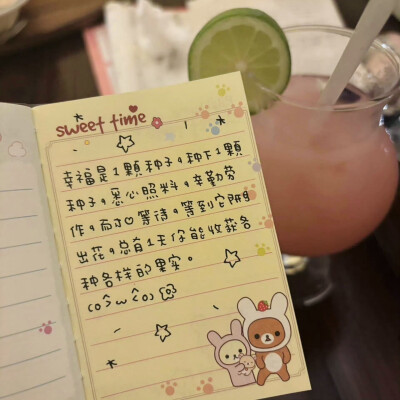 sweet time
幸福是1顆种子，种下1顆
种子，悉心照料，辛勤劳
作，而从心等待，等到它開
出花，总有1天你能收获各
种各样的果实。